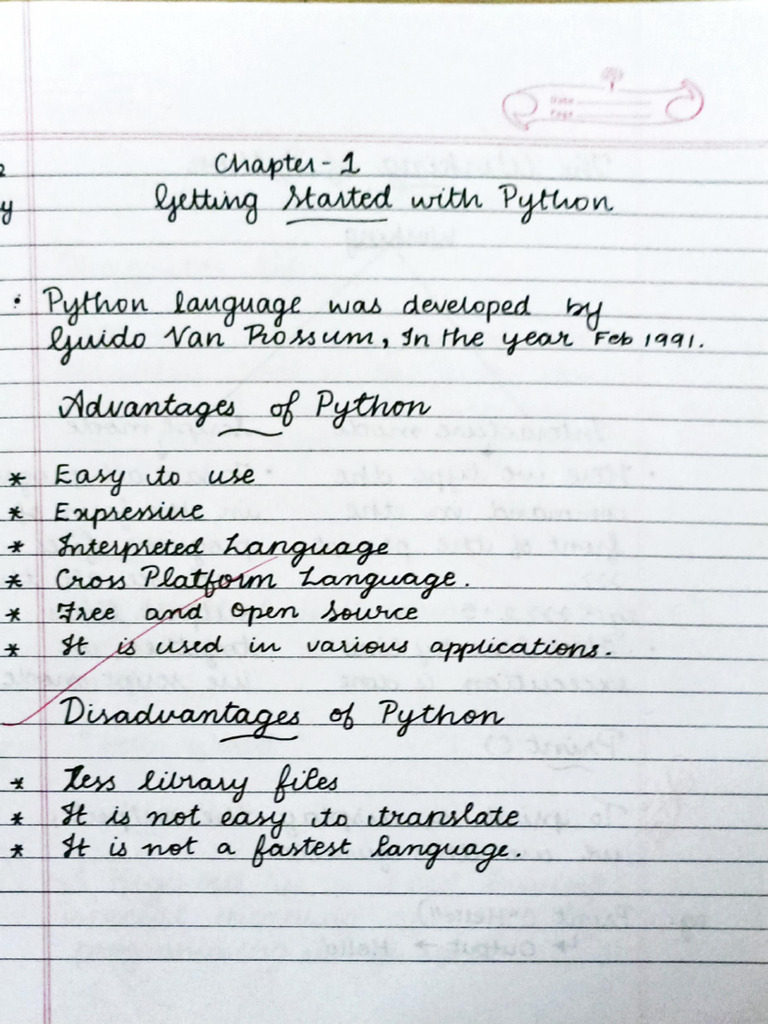 Date
Page
Chapter-1
Getting Started with Python
• Python language was developed by
Guido Van Rossum, In the year Feb 1991.
Advantages of Python
* Easy to use
* Expressive
* Interpreted Language
* Cross Platform Language.
* Free and Open Source
* It is used in various applications.
Disadvantages of Python
* Less library files
* It is not easy to translate
* It is not a fastest language.